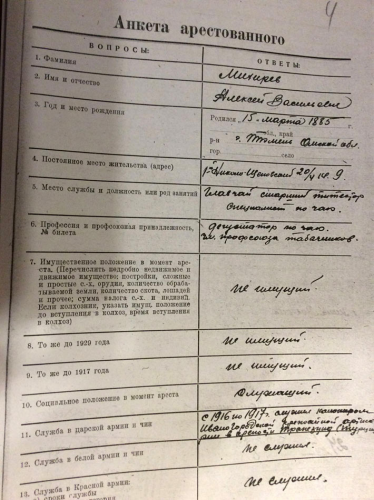 4
Анкета арестованного
ВОПРОСЫ:
ОТВЕТЫ:
1. Фамилия
Михирев
2. Имя и отчество
Алексей Васильевич
3. Год и место рождения
Родился 15 марта 1885
обл., край
р-н
г. Тюмень Омской обл.
гор.
село
4. Постоянное место жительства (адрес)
кв. 9.
5. Место службы и должность или род занятий
Главчай старший титестер
специалист по чаю.
6. Профессия и профсоюзная принадлежность,
№ билета
дегустатор по чаю.
чл. профсоюза табачников.
7. Имущественное положение в момент аре-
ста. (Перечислить подробно недвижимое и
движимое имущество: постройки, сложные
и простые с.-х. орудия, количество обраба-
тываемой земли, количество скота, лошадей
и прочее; сумма налога с.-х. и индивид.
Если колхозник, указать имущ. положение
до вступления в колхоз, время вступления
в колхоз)
не имущий.
8. То же до 1929 года
не имущий.
9. То же до 1917 года
не имущий.
10. Социальное положение в момент ареста
Служащий.
11. Служба в царской армии и чин
с 1916 по 1917 г. служил канониром
Ивангородской крепостной артилле-
рии в крепости Трапезунд (Турция)
12. Служба в белой армии и чин
не служил.
13. Служба в Красной армии:
а) сроки службы
не служил.